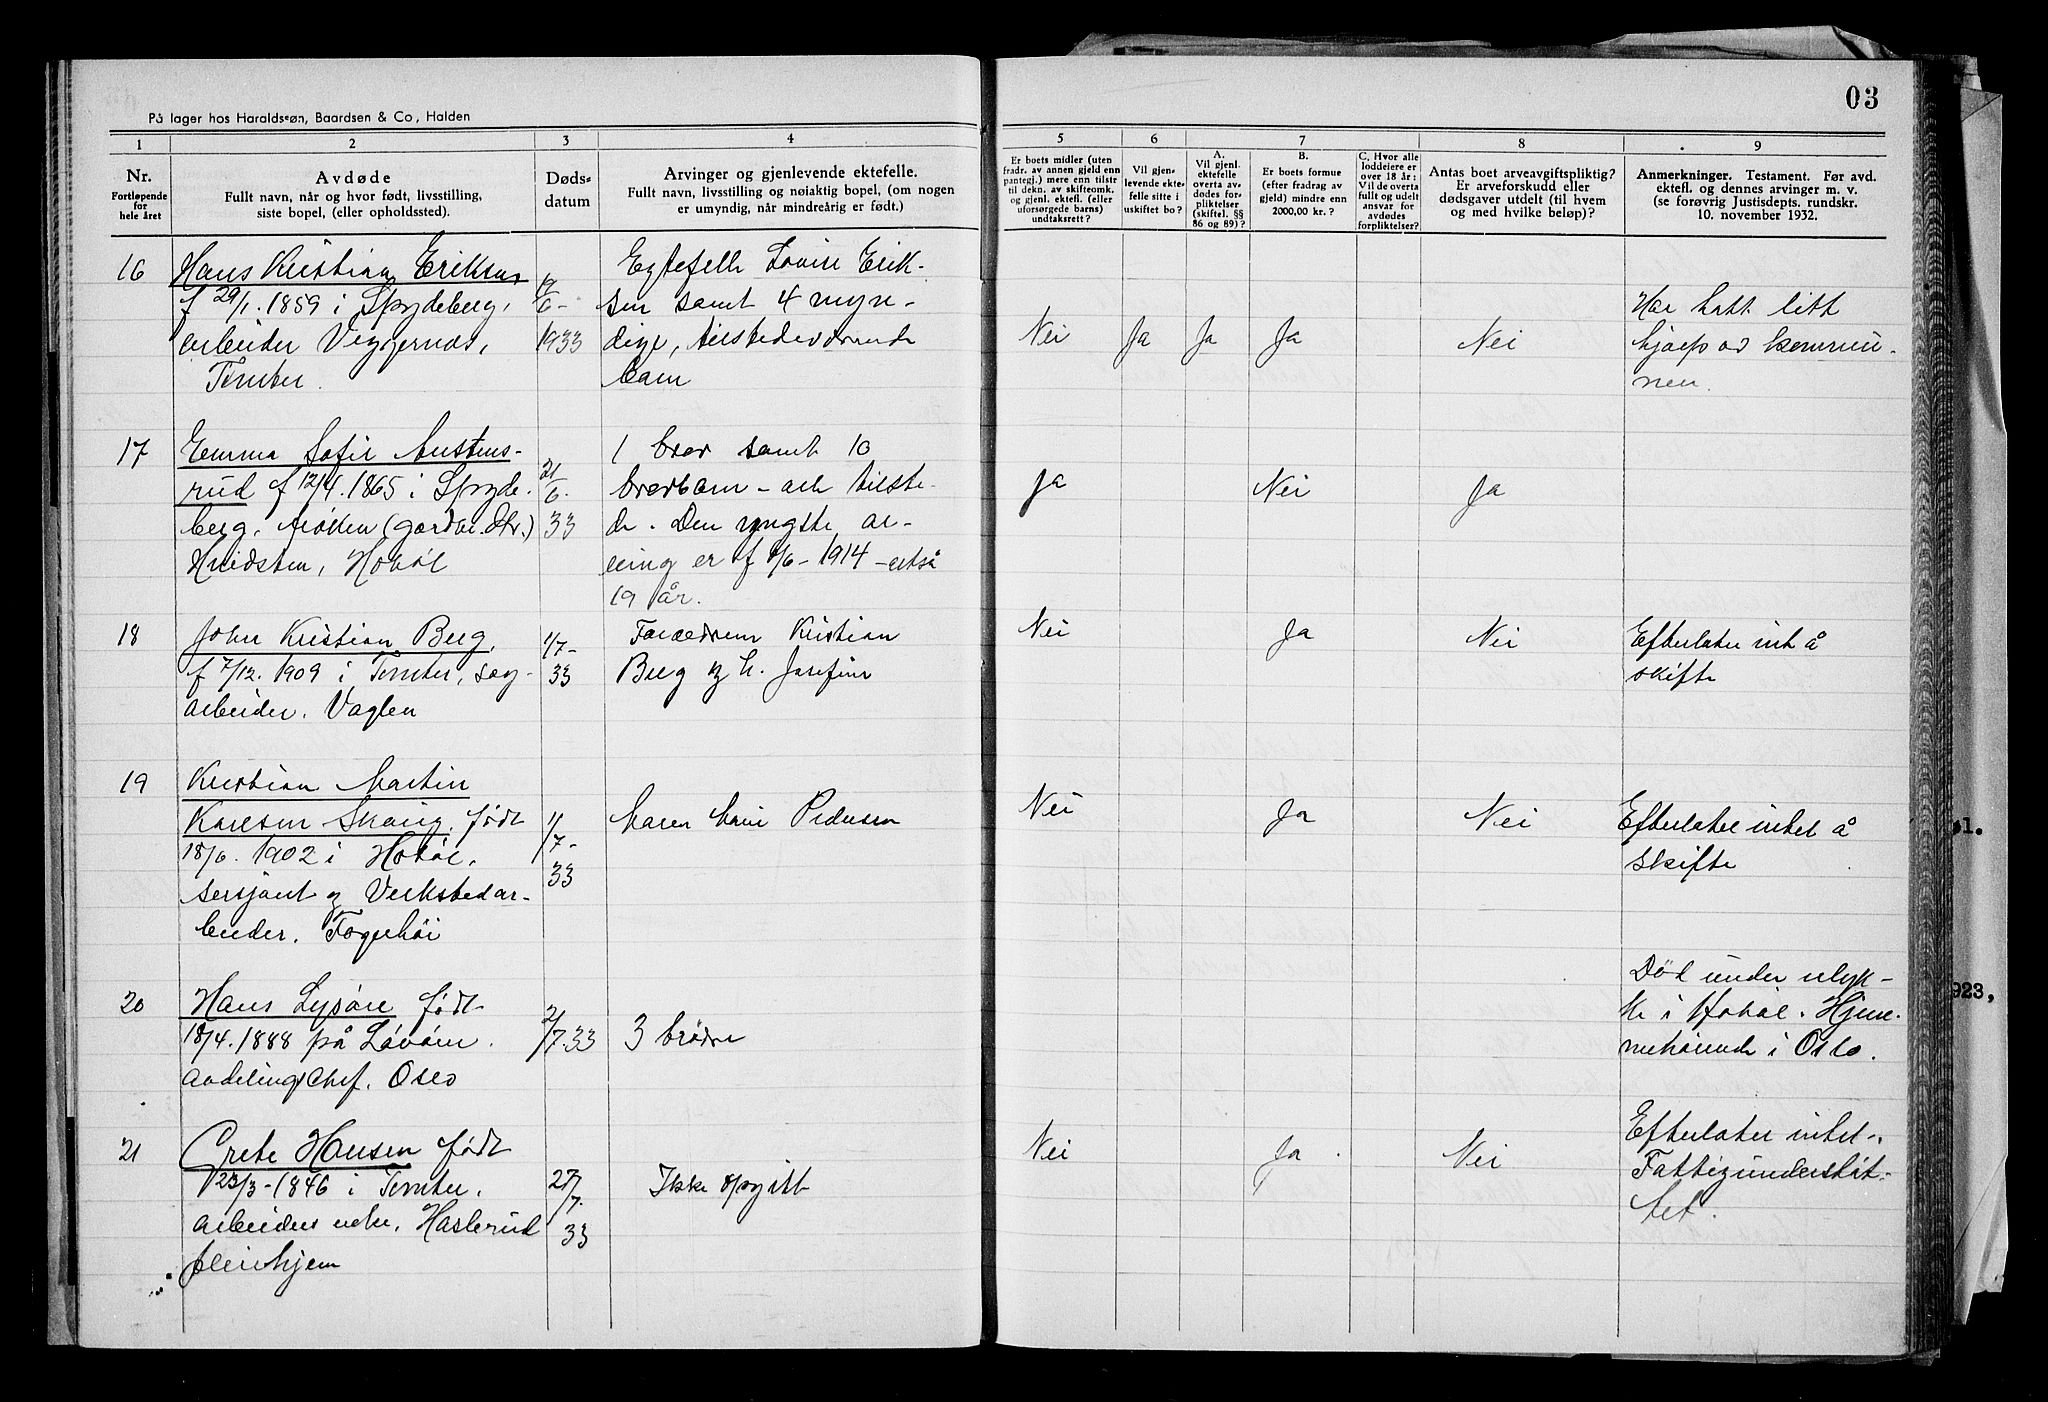 På lager hos Haraldssøn, Baardsen & Co., Halden
03
1 2 3 4 5 6 7 8 9
Nr.
Fortløpende
for
hele året
Avdøde
Fullt navn, når og hvor født, livsstilling,
siste bopel, (eller opholdssted).
Døds-
datum
Arvinger og gjenlevende ektefelle.
Fullt navn, livsstilling og nøiaktig bopel, (om nogen
er umyndig, når mindreårig er født.)
Er boets midler (uten
fradr. av annen gjeld enn
pantegj.) mere enn tilstr.
til dekn. av skifteomk.
og gjenl. ektef. (eller
uforsørgede barns)
undtaksrett?
Vil gjen-
levende ekte-
felle sitte i
uskiftet bo?
A.
Vil gjenl.
ektefelle
overta av-
dødes for-
pliktelser
(skiftel. §§
86 og 89)?
B.
Er boets formue
(efter fradrag av
gjeld) mindre enn
2000,00 kr.?
C. Hvor alle
loddeiere er
over 18 år:
Vil de overta
fullt og udelt
ansvar for
avdødes
forpliktelser?
Antas boet arveavgiftspliktig?
Er arveforskudd eller
dødsgaver utdelt (til hvem
og med hvilke beløp)?
Anmerkninger. Testament. Før avd.
ektefl. og dennes arvinger m. v.
(se forøvrig Justisdepts. rundskr.
10. november 1932.
16
Hans Kristian Eriksen,
f 29/1. 1859 i Spydeberg,
arbeider
Tomter.
6-
1933
Egtefelle Lovise Erik-
sen samt 4 myn-
dige, tilstedeværende
barn
Nei Ja Ja Ja Nei
Har hatt litt
hjælp av kommu-
nen.
17
Emma Sofie Austens-
rud f 12/4. 1865 i Spyde-
berg.
Hobøl
21/
6.
33
1 bror samt 10
brorbarn – alle tilste-
de. Den yngste ar-
ving er f /6 – 1914 – altså
19 år.
Ja Nei Ja
18
John Kristian Berg,
f 7/12. 1909 i Tomter, sag-
arbeider. Vaglen
1/7-
33
Forældrene Kristian
Berg og h. Josefine
Nei Ja Nei
Efterlater intet å
skifte
19
Kristian Martin
Karlsen Skaug, født
18/6. 1902 i Hobøl,
sersjant og Verkstedar-
beider. Fogerhøi
1/
7-
33
Maren Marie Pedersen
Nei Ja Nei
Efterlater intet å
skifte
20
Hans Lysøre født
18/4. 1888 på
avdelingschef. Oslo
2/
7.33
3 brødre
Død under ulyk-
ke i Hobøl. Hjem-
mehørende i Oslo.
21
Grete Hansen født
23/3 – 1846 i Tomter.
arbeiders enke. Haslerud
pleiehjem
27/
7.
33
Ikke opgitt
Nei Ja Nei
Efterlater intet.
Fattigunderstøt-
tet.
øl.
923,